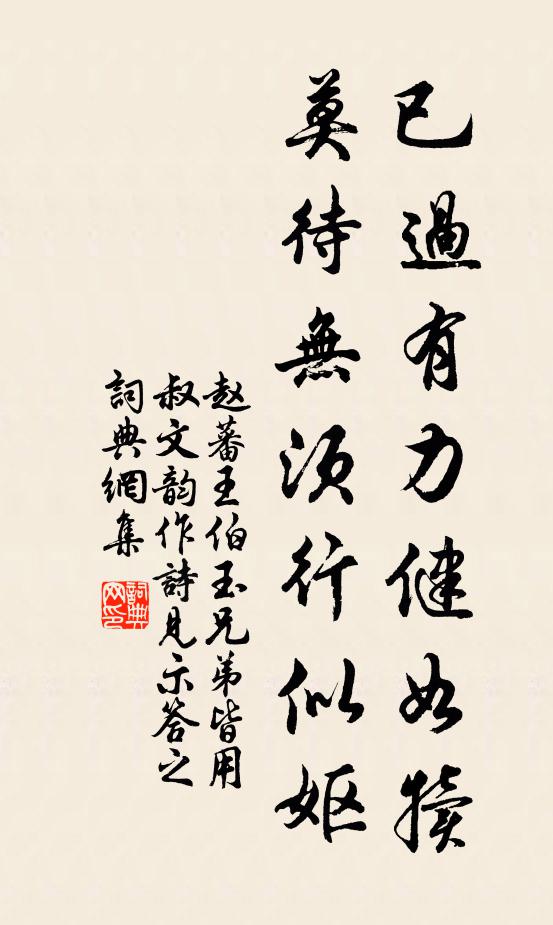 已過有力健如犢
莫待無須行似嫗
赵蕃王伯玉兄弟皆用
叔文韵作詩見示答之
詞典網集
詞典網印